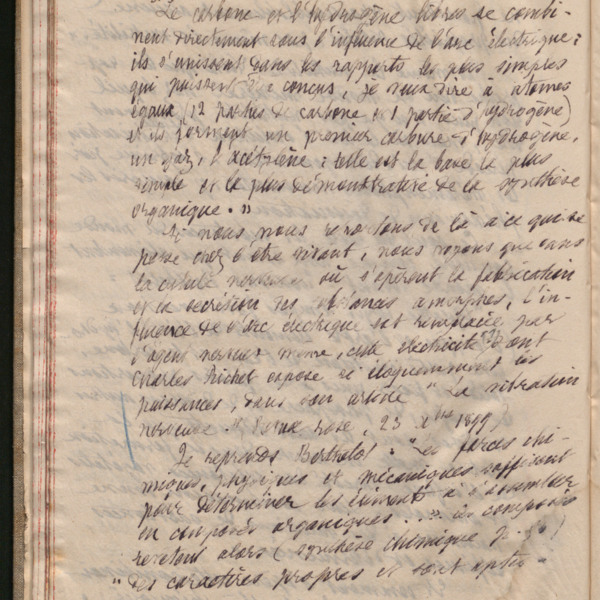 Le carbone et l'hydrogène libres se combi-
nent directement sous l'influence de l'arc électrique :
ils s'unissent dans les rapports les plus simples
qui puissent être conçus, je veux dire à atomes
égaux (12 parties de carbone et 1 partie d'hydrogène)
et ils forment un premier carbure d'hydrogène,
un gaz, l'acétylène : telle est la base la plus
simple et la plus démonstrative de la synthèse
organique. »
Si nous nous reportons de là à ce qui se
passe chez l'être vivant, nous voyons que dans
la cellule nerveuse où s'opèrent la fabrication
et la sécrétion des substances amorphes, l'in-
fluence de l'arc électrique est remplacée par
l'agent nerveux même, cette électricité (?) dont
Charles Richet expose si éloquemment les
puissances, dans son article "La vibration
nerveuse" rose, 23 Xbre 1899)
Je reprends Berthelot : "Les forces chi-
miques, physiques et mécaniques suffisent
pour déterminer les éléments à s'assembler
en composés organiques ..." Les composés
revêtent alors (synthèse chimique
"des caractères propres et sont aptes